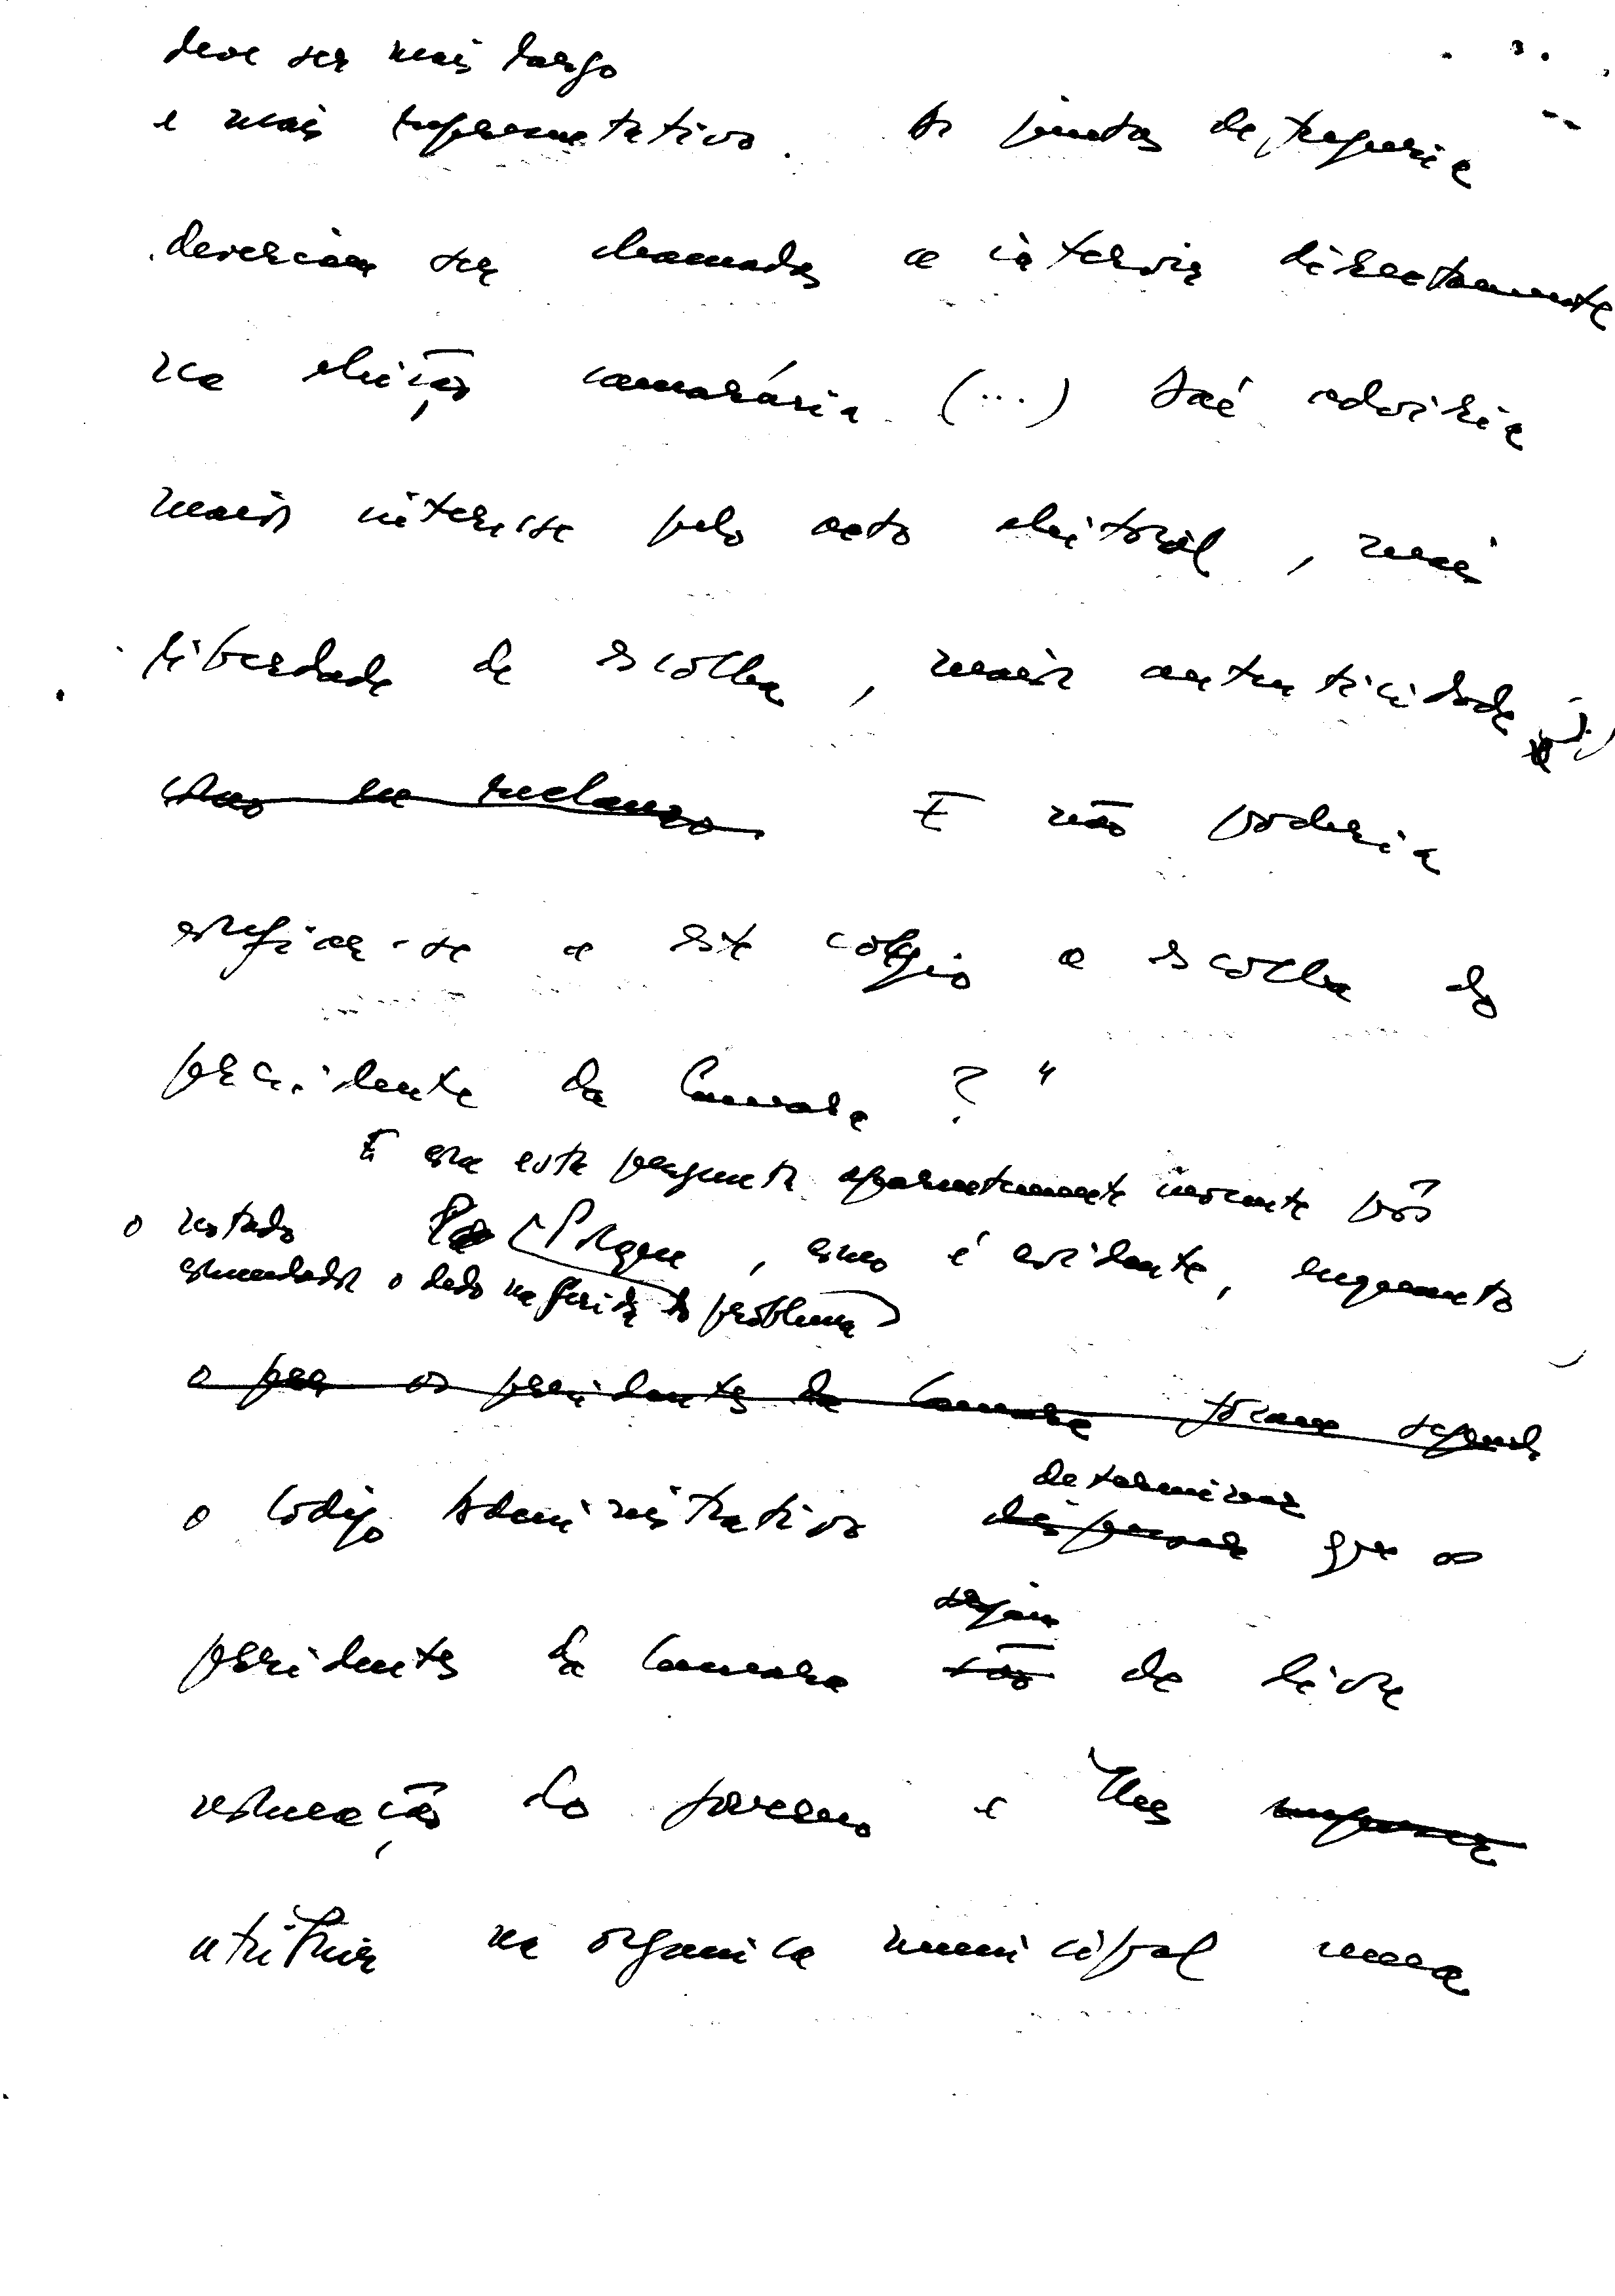 deve ser mais largo
e mais representativo. As juntas de freguesia
deveriam ser chamadas a intervir directamente
na eleição camarária (...) Daí adviria
maior interesse pelo acto eleitoral, mais
liberdade de escolha, maior autenticidade
E não poderia
confiar-se a este colégio a escolha do
presidente da Camara ? "
E com esta pergunta aparentemente inocente pôs
o notado Porque, como é evidente, enquanto
comendador o dedo na ferida do problema
o presidentes da Camara forem segundo
o Codigo Administrativo determinar que os
sejam
presidentes da Camara são de livre
nomeação do governo e lhes
atribuir na organica municipal uma